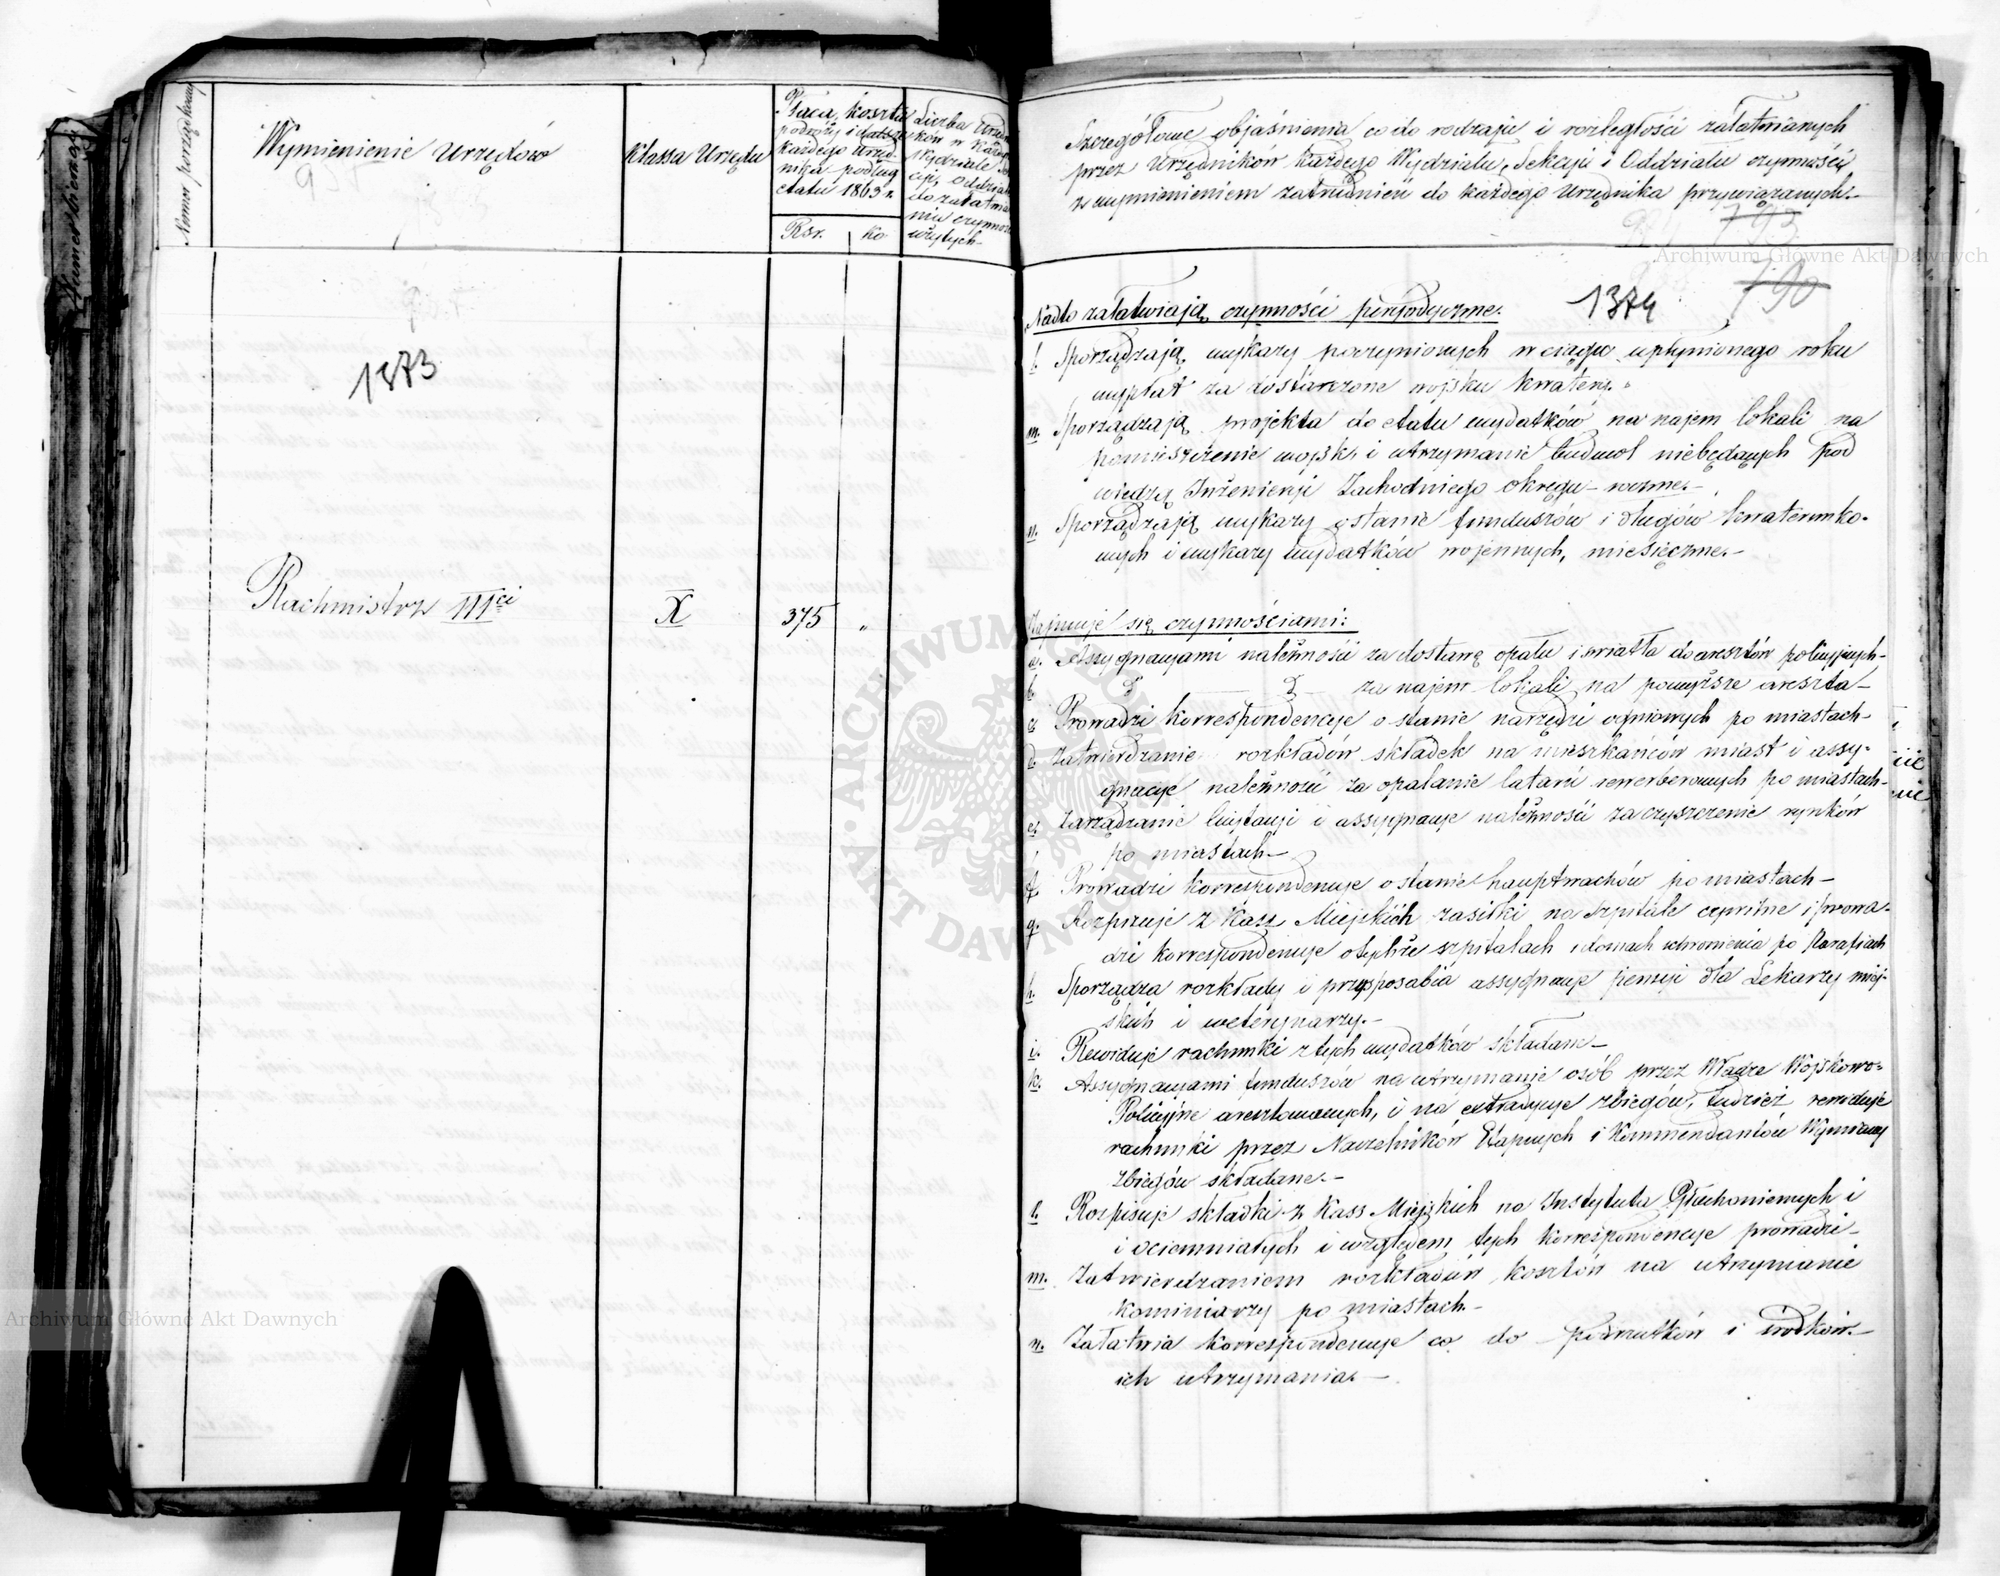 Numer porządkowy
Wymienienie Urzędów
Klassa Urzędu
Płaca, koszta
podróży i dalsze
każdego Urzęd-
nika podług
etatu 1863 r.
Rsr. ko
Liczba Urzęd
ków w każdym
Wydziale
cji, Oddziale
do załatwia
nia czynnośc
użytych
1373
Rachmistrz III ci X 375 "
Szczegółowe objaśnienia co do rodzaju i rozległości załatwianych
przez Urzędników każdego Wydziału, Sekcyi i Oddziału czynności
z wymienieniem zatrudnień do każdego Urzędnika przywiązanych.
793
790
1374
Nadto załatwiają czynności peryodyczne.
l. Sporządzają wykazy poczynionych w ciągu upłynionego roku
wypłat za dostarczone wojsku kwatery.
m. Sporządzają projekta do etatu wydatków na najem lokali na
pomieszczenie wojsk i utrzymanie budowl niebędących pod
wiedzą Inżenierji Zachodniego okręgu - roczne.-
n. Sporządzają wykazy o stanie funduszów i długów kwaterunko-
wych i wykazy wydatków wojennych, miesięczne.-
Zajmuje się czynnościami:
a. Assygnacyami należności za dostawę opału i światła do aresztów policyjnych-
b. za najem lokali na powyższe areszta-
c. Prowadzi korrespondencyje o stanie narzędzi ogniowych po miastach-
d. Zatwierdzanie rozkładów składek na mieszkańców miast i assy-
gnacye należności za opalanie latarń rewerberowych po miastach-
e. Zarządzanie licytacji i assygnacye należności za czyszczenie rynków
po miastach-
f. Prowadzi korrespondencyje o stanie hauptwachów po miastach-
g. Rozpisuje z Kass Miejskich zasiłki na szpitale cywilne i prowa-
dzi korrespondencyje o tychże szpitalach i domach schronienia po Parafiach
h. Sporządza rozkłady i przysposabia assygnacye pensyi dla Lekarzy miej-
skich i weterynarzy.-
i. Rewiduje rachunki z tych wydatków składane-
k. Assygnacyami funduszów na utrzymanie osób przez Władze Wojskowo-
Policyjne aresztowanych, i na extradycye zbiegów, tudzież rewiduje
rachunki przez Naczelników Etapowych i Kommendantów Wymiany
zbiegów składane.-
l. Rozpisuje składki z Kass Miejskich na Instytuta Głuchoniemych i
i ociemniałych i względem tych korrespondencye prowadzi-
m. Zatwierdzaniem rozkładów kosztów na utrzymanie
kominiarzy po miastach-
n. Załatwia korrespondencye co do podrzutków i środków
ich utrzymania.-
Archiwum Główne Akt Dawnych
Archiwum Główne Akt Dawnych
ARCHIWUM GŁÓWNE AKT DAWNYCH